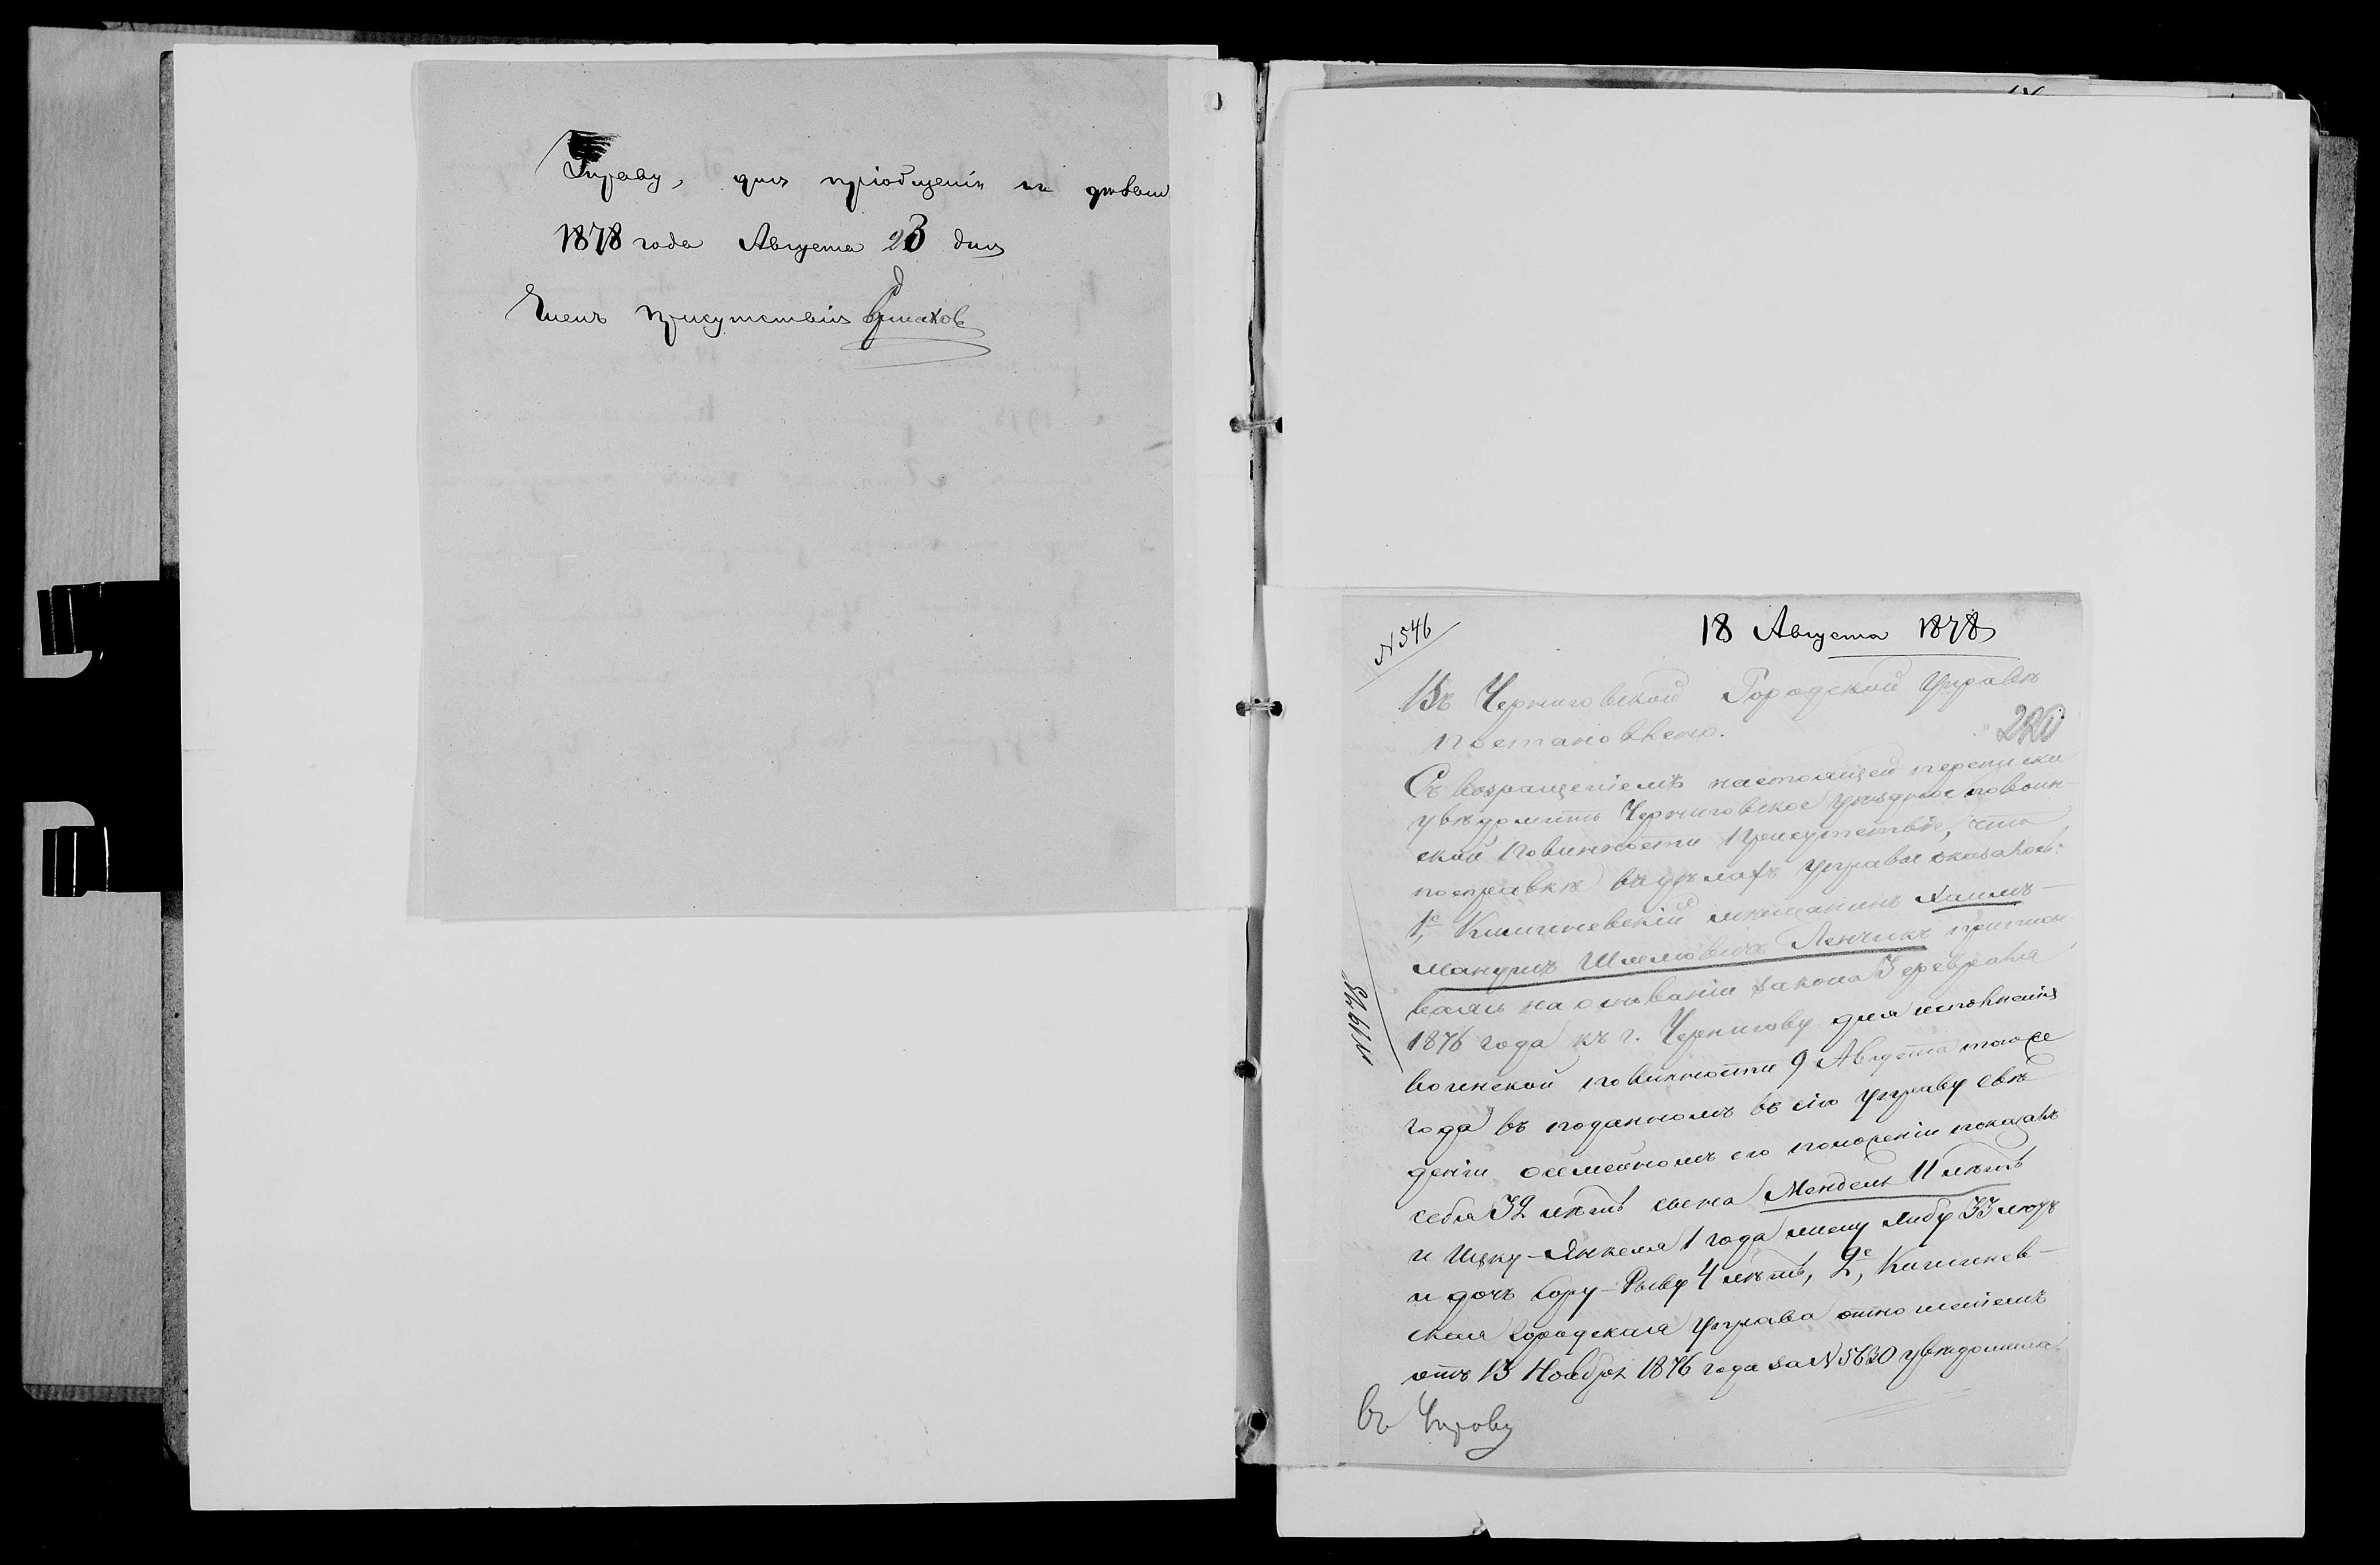 Управу, для пріобщенія къ дѣлам
1878 года Августа 23 дня
Членъ присутствія Ермаковъ
№ 546
18 Августа 1878
Въ Черниговской Городской Управѣ
постановлено.
Съ возращеніемъ настоящей переписки
увѣдомить Черниговское уѣздное по воин-
ской повинности Присутствіе, что
по справкѣ въ дѣлахъ управы оказалось:
1е, Кишиневскій мѣщанинъ Хаимъ-
Мандушъ Шлемовичъ Ленчикъ приписы
ваясь на основаніи закона 3 февраля
1876 года къ г. Чернигову для исполненія
воинской повинности 9 Августа того же
года въ поданномъ въ сію управу свѣ
деніи о семейномъ его положеніи показалъ
себя 32 лѣтъ сына Мендель 11 лѣтъ
и Ицку-Янкеля 1 года жену Либу 33 лѣтъ
и дочь Сору-Рыву 4 лѣтъ, 2е, Кишинев-
ская городская Управа отношеніемъ
отъ 13 Ноября 1876 года за № 5630 увѣдомила
Въ Управу